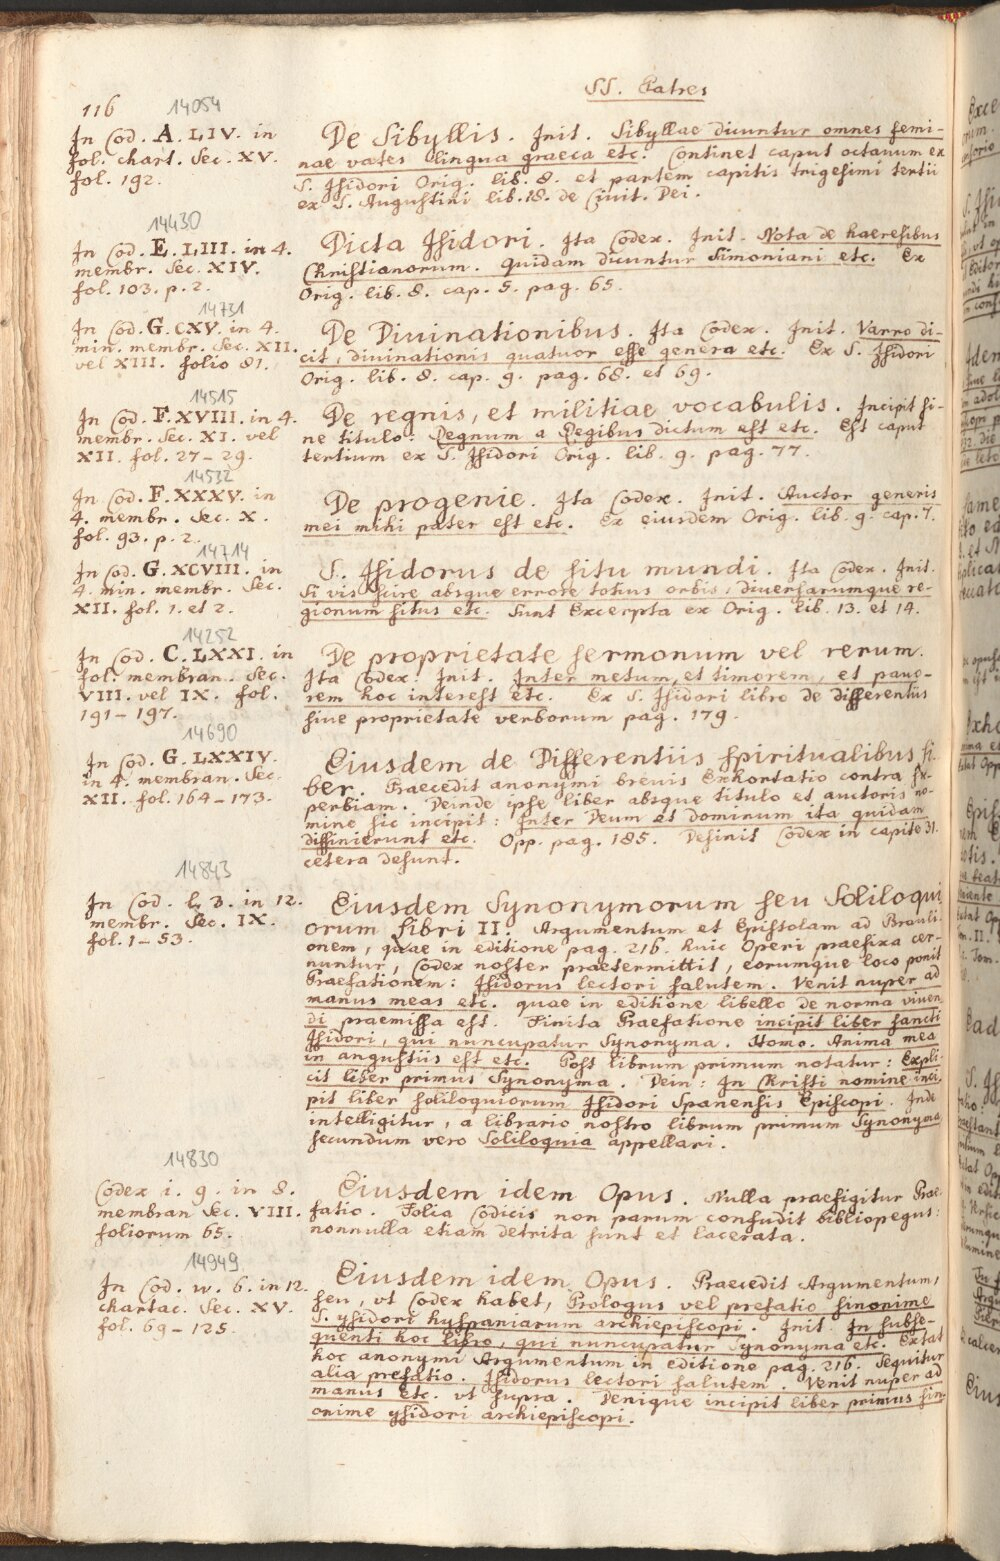 SS. Patres
116
14054
In Cod. A. LIV. in
fol. chart. Sec. XV.
fol. 192.
De Sibyllis. Init. Sibyllae dicuntur omnes femi-
nae vates lingua graeca etc. Continet caput octauum ex
S. Isidori Orig. lib. 8. et partem capitis trigesimi tertii
ex S. Augustini lib. 18. de Ciuit. Dei.
14430
In Cod. E. LIII. in 4.
membr. Sec. XIV.
fol. 103. p. 2.
Dicta Isidori. Ita Codex. Init. Nota de haeresibus
Christianorum. Quidam dicuntur Simoniani etc. Ex
Orig. lib. 8. cap. 5. pag. 65.
14731
In Cod. G. CXV. in 4.
min. membr. Sec. XII.
vel XIII. folio 81.
De Diuinationibus. Ita Codex. Init. Varro di-
cit, diuinationis quatuor esse genera etc. Ex S. Isidori
Orig. lib. 8. cap. 9. pag. 68. et 69.
14515
In Cod. F. XVIII. in 4.
membr. Sec. XI. vel
XII. fol. 27-29.
De regnis, et militiae vocabulis. Incipit si-
ne titulo: Regnum a Regibus dictum est etc. Est caput
tertium ex S. Isidori Orig. lib. 9. pag. 77.
14532
In Cod. F. XXXV. in
4. membr. Sec. X.
fol. 93. p. 2.
De progenie. Ita Codex. Init. Auctor generis
mei mihi pater est etc. Ex eiusdem Orig. lib. 9. cap. 7.
14714
In Cod. G. XCVIII. in
4. min. membr. Sec.
XII. fol. 1. et 2.
S. Isidorus de situ mundi. Ita Codex. Init.
Si vis scire absque errore totius orbis, diuersarumque re-
gionum situs etc. Sunt Excerpta ex Orig. lib. 13. et 14.
14252
In Cod. C. LXXI. in
fol. membran. Sec.
VIII. vel IX. fol.
191-197.
De proprietate sermonum vel rerum.
Ita Codex. Init. Inter metum, et timorem, et pauo-
rem hoc interest etc. Ex S. Isidori libro de differentiis
siue proprietate verborum pag. 179.
14690
In Cod. G. LXXIV.
in 4. membran. Sec.
XII. fol. 164-173.
Eiusdem de Differentiis spiritualibus li-
ber. Praecedit anonymi breuis Exhortatio contra su-
perbiam. Deinde ipse liber absque titulo et auctoris no-
mine sic incipit: Inter Deum et dominum ita quidam
diffinierunt etc. Opp. pag. 185. Desinit Codex in capite 31.
cetera desunt.
14843
In Cod. l. 3. in 12.
membr. Sec. IX.
fol. 1-53.
Eiusdem Synonymorum seu Soliloqui
orum libri II. Argumentum et Epistolam ad Brauli-
onem, quae in editione pag. 216. huic Operi praefixa cer-
nuntur, Codex noster praetermittit, eorumque loco ponit
Praefationem: Isidorus lectori salutem. Venit nuper ad
manus meas etc. quae in editione libello de norma viuen
di praemissa est. Finita Praefatione incipit liber sancti
Isidori, qui nuncupatur Synonyma. Homo. Anima mea
in angustiis est etc. Post librum primum notatur: Expli-
cit liber primus Synonyma. Dein: In Christi nomine inci
pit liber soliloquiorum Isidori Spanensis Episcopi. Inde
intelligitur, a librario nostro librum primum Synonyma,
secundum vero Soliloquia appellari.
14830
Codex i. 9. in 8.
membran Sec. VIII.
foliorum 65.
Eiusdem idem Opus. Nulla praefigitur Prae-
fatio. Folia Codicis non parum confudit bibliopegus:
nonnulla etiam detrita sunt et lacerata.
14949
In Cod. w. 6. in 12.
chartac. Sec. XV.
fol. 69-125.
Eiusdem idem Opus. Praecedit Argumentum,
seu, vt Codex habet, Prologus vel prefatio sinonime
S. ysidori hyspaniarum archiepiscopi. Init. In subse-
quenti hoc libro, qui nuncupatur Synonyma etc. Extat
hoc anonymi Argumentum in editione pag. 216. Sequitur
alia prefatio. Isidorus lectori salutem. Venit nuper ad
manus etc. vt supra. Denique incipit liber primus sin-
onime ysidori archiepiscopi.